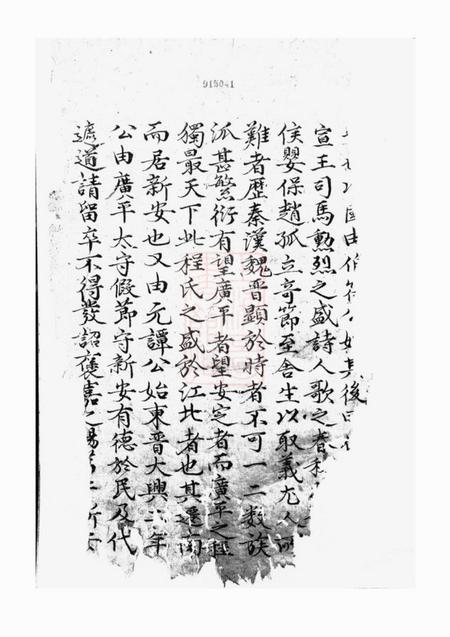 915041
後
宣王司馬勲烈之盛詩人歌之春
侯嬰保趙孤立竒節至舍生以取義尤人
難者歷秦漢魏晉顯於時者不可一二数族
派甚繁衍有望廣平者望安定者而廣平之
獨最天下此程氏之盛於江北者也其遷南
而居新安也又由元譚公始東晉大興 年
公由廣平太守假節守新安有德於民及代
遮道請留卒不得發詔褒